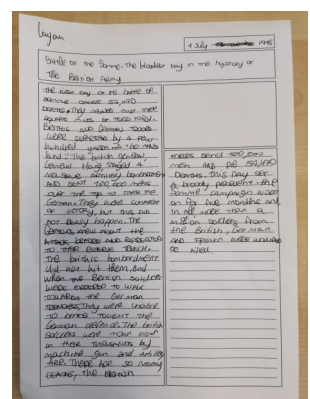 Layan
1 July 1916
Battle of the Somme - The bloodiest day in the history of
The British Army
The first day of the battle of
Somme caused 57,470
DEATHS. They
square miles of
British and German TROOPS
WERE separated by a few
hundred yards of "no mans
land". The british general,
General Haig staged a
massive artillery bombardment
AND SENT 100,000 men
over the top to take the
German. They were confident
of victory, but this DID
not really happen. The
Germans knew about the
Attack before AND retreated
to their TRENCH.
The britains bombardment
did not hit them, and
when the British soldiers
WERE ORDERED to WALK
towards the German
TRENCHES, They were unable
to the
German defence. The british
soldiers were mown down
in their thousands by
machine gun and artillery
fire. There are so many
DEATHS, the British
forces send 100,000
men AND 57,470
DEATHS. This day set
a bloody the
Somme campaign went
on for five months and
in all more than a
million soldiers from
the British, German
AND FRENCH were wounded
or killed.